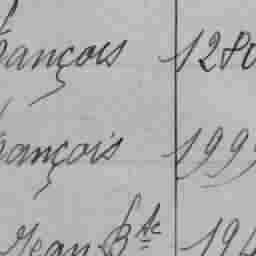 françois 1280
françois 1999
Jean Bte 194